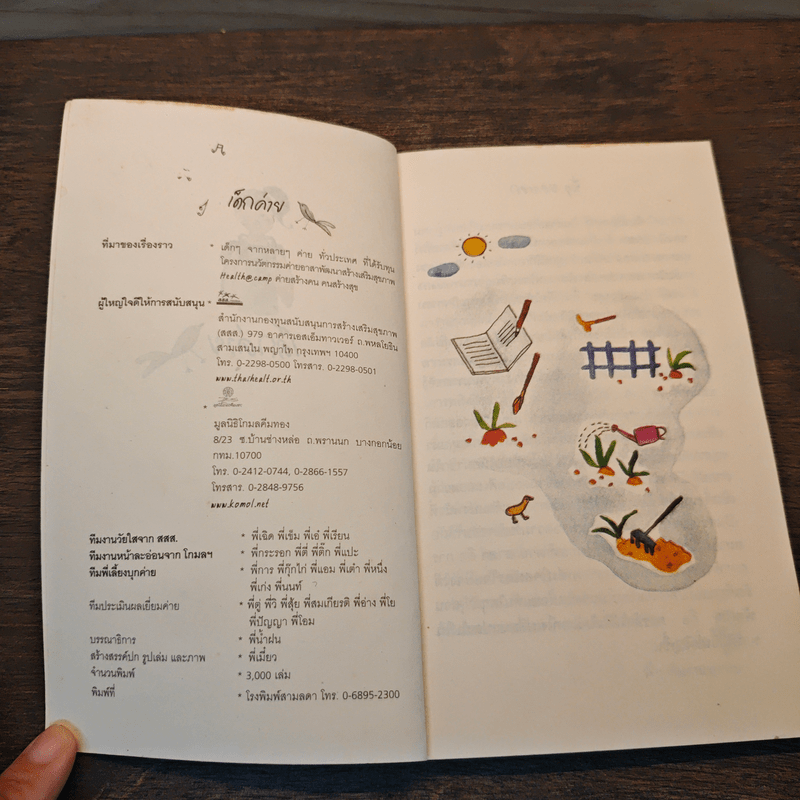 เด็กค่าย
ที่มาของเรื่องราว * เด็กๆ จากหลายๆ ค่าย ทั่วประเทศ ที่ได้รับทุน
โครงการนวัตกรรมค่ายอาสาพัฒนาสร้างเสริมสุขภาพ
Health@camp ค่ายสร้างคน คนสร้างสุข
ผู้ใหญ่ใจดีให้การสนับสนุน *
สำนักงานกองทุนสนับสนุนการสร้างเสริมสุขภาพ
(สสส.) 979 อาคารเอสเอ็มทาวเวอร์ ถ.พหลโยธิน
สามเสนใน พญาไท กรุงเทพฯ 10400
โทร. 0-2298-0500 โทรสาร. 0-2298-0501
www.thaihealt.or.th
*
มูลนิธิโกมลคีมทอง
8/23 ซ.บ้านช่างหล่อ ถ.พรานนก บางกอกน้อย
กทม.10700
โทร. 0-2412-0744, 0-2866-1557
โทรสาร. 0-2848-9756
www.komol.net
ทีมงานวัยใสจาก สสส. * พี่เฉิด พี่เข็ม พี่เอ๋ พี่เรียน
ทีมงานหน้าละอ่อนจาก โกมลฯ * พี่กระรอก พี่ตี่ พี่ติ๊ก พี่แปะ
ทีมพี่เลี้ยงบุกค่าย * พี่การ พี่กุ๊กไก่ พี่แอม พี่เต๋า พี่หนึ่ง
พี่เก่ง พี่นนท์
ทีมประเมินผลเยี่ยมค่าย * พี่ตู่ พี่วิ พี่สุ้ย พี่สมเกียรติ พี่อ่าง พี่โย
พี่ปัญญา พี่โอม
บรรณาธิการ * พี่น้ำฝน
สร้างสรรค์ปก รูปเล่ม และภาพ * พี่เมี่ยว
จำนวนพิมพ์ * 3,000 เล่ม
พิมพ์ที่ * โรงพิมพ์สามลดา โทร. 0-6895-2300